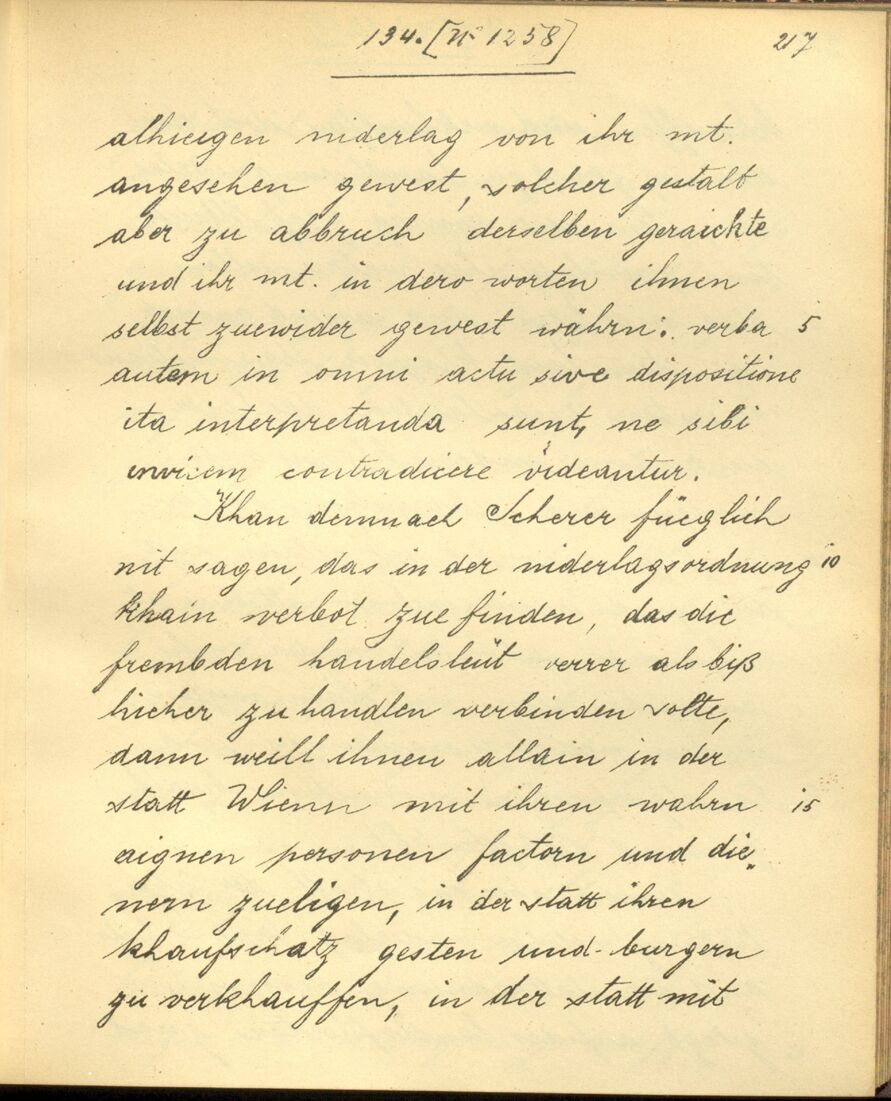 134. [N° 1258]
217
alhieigen niderlag von ihr mt.
angesehen gewest, solcher gestalt
aber zu abbruch derselben geraichte
und ihr mt. in dero worten ihnen
selbst zuewider gewest währn: verba 5
autem in omni actu sive dispositione
ita interpretanda sunt, ne sibi
invicem contradicere videantur.
Khan demnach Scherer füeglich
nit sagen, das in der niderlagsordnung 10
khain verbot zue finden, das die
frembden handelsleüt verrer als biß
hieher zu handlen verbinden solte,
dann weill ihnen allain in der
statt Wienn mit ihren wahrn 15
aignen personen factorn und die„
nern zueligen, in der statt ihren
khaufschatz gesten und burgern
zu verkhauffen, in der statt mit